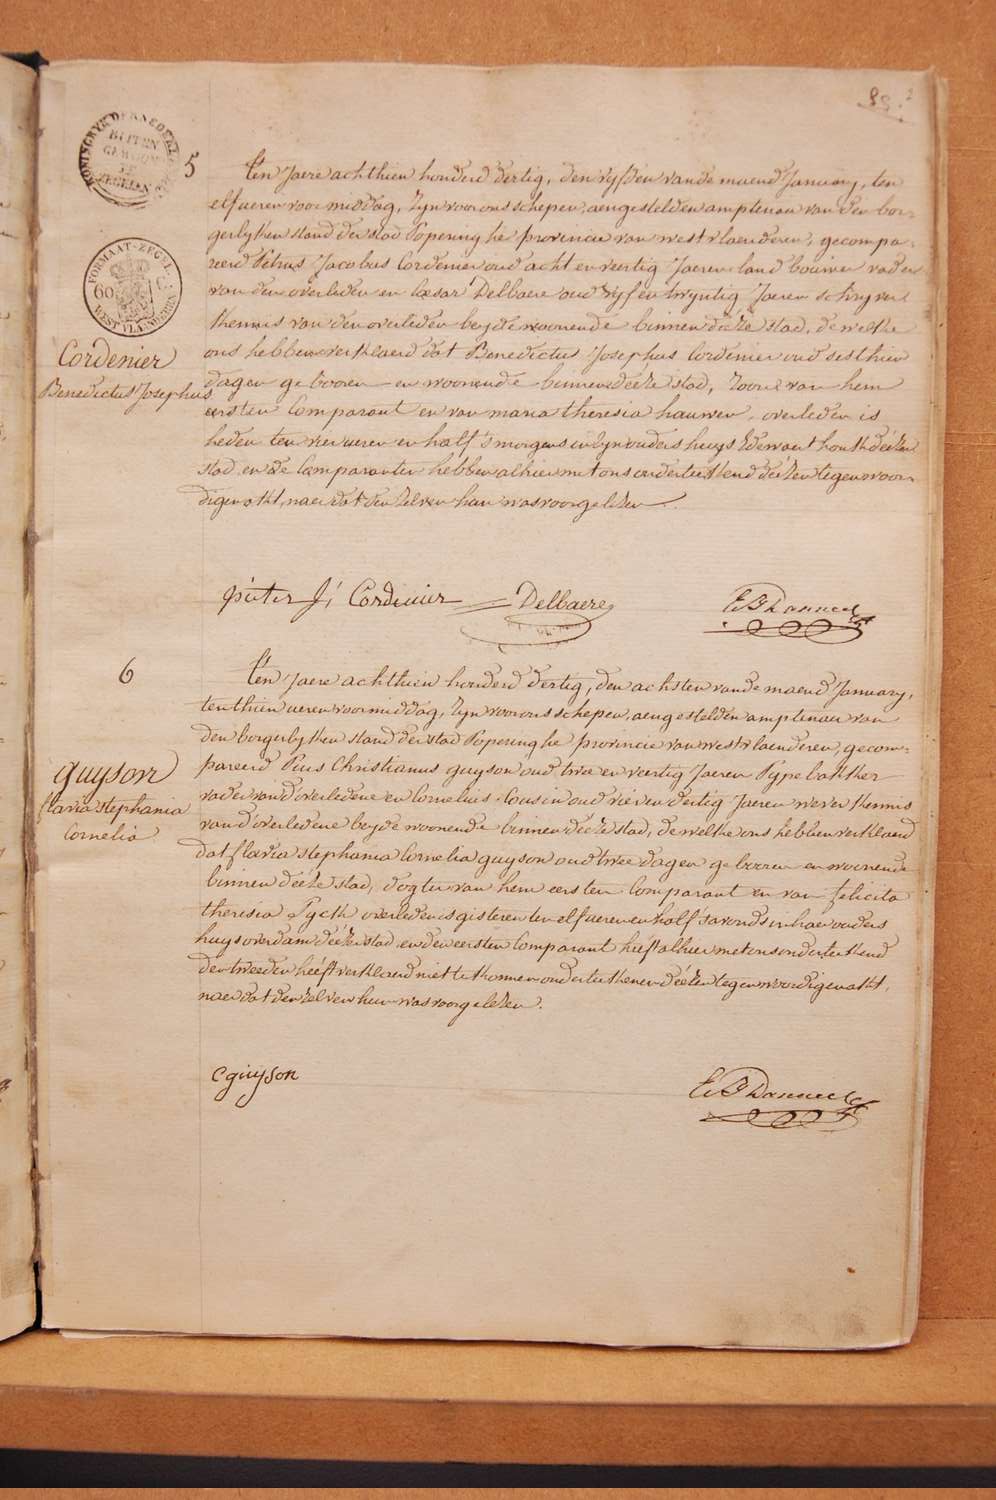 KONINGRYK DER NEDERLANDEN
BUITEN
GEWOON
ZEGELEN
FORMAAT-ZEGEL
60 C
WEST VLAENDEREN
5
Cordenier
Benedictus Josephus
T'en Jaere achthien honderd dertig, den vyfden vande maend January, ten
elf ueren voormiddag, zyn voor ons schepen, aengestelden amptenaer van den bor-
gerlyken stand der stad Poperinghe provincie van westvlaenderen, gecompa-
reerd Petrus Jacobus Cordenier oud acht en veertig Jaeren landbouwer vader
van den overleden en Cæsar Delbaere oud vyf en twyntig Jaeren schryver
kennis van den overleden beyde woonende binnen deéze stad, de welke
ons hebben verklaerd dat Benedictus Josephus Cordenier oud sesthien
dagen gebooren en woonende binnen deéze stad, zoone van hem
eersten Comparant en van maria theresia hauwen, overleden is
heden ten vier ueren en half s'morgens in zyn ouders huys
stad en de Comparanten hebben alhier met ons onderteekend deézen tegenwoor-
digen akt, naer dat den zelven hun was voorgelezen
pieter J, Cordenier Delbaere
6
guyson
flavia stephania
Cornelia
T'en Jaere achthien honderd dertig, den achsten vande maend January,
ten thien ueren voormiddag, zyn voor ons schepen, aengestelden amptenaer van
den borgerlyken stand der stad Poperinghe provincie van westvlaenderen, gecom-
pareerd Pius Christianus guyson oud twee en veertig Jaeren Pypebakker
vader van d'overledene en Cornelius Cousin oud vier en dertig Jaeren wever kennis
van d'overledene beyde woonende binnen deéze stad, de welke ons hebben verklaerd
dat flavia stephania Cornelia guyson oud twee dagen gebooren en woonende
binnen deéze stad, dogter van hem eersten Comparant en van felicita
theresia Tyck overleden is gisteren ten elf ueren en half s'avonds in haer ouders
huys overdam deézer stad en den eersten Comparant heeft alhier met ons onderteekend
den tweeden heeft verklaerd niet te konnen onderteekenen deézen tegenwoordigen akt,
naer dat den zelven hun was voorgelezen.
C guyson